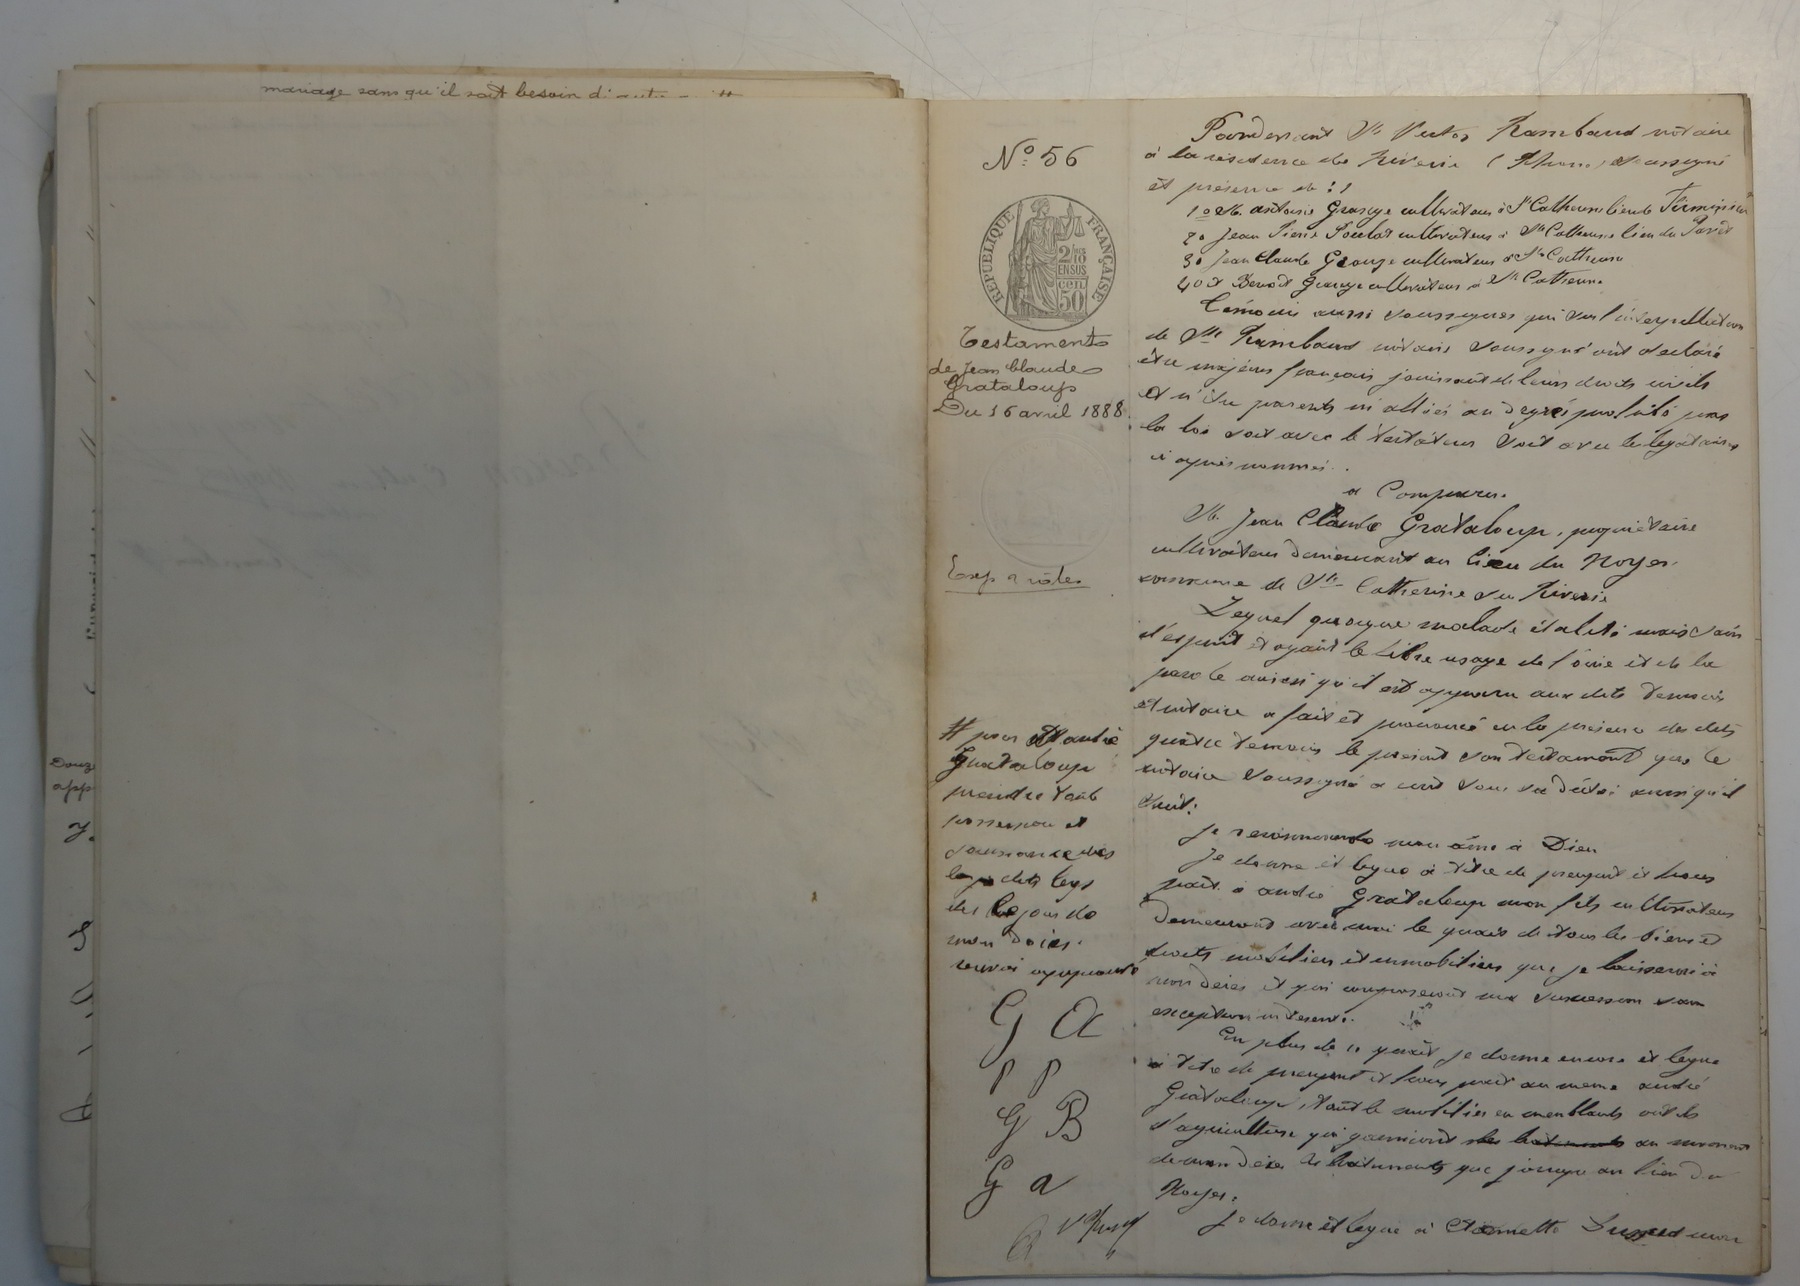 mariage sans qu'il soit besoin d'autre
Douz
app
No 56
REPUBLIQUE FRANÇAISE
2/10
EN SUS
50 cen
Testament
de Jean Claude
Grataloup
Du 16 avril 1888.
Exp 2 rôles
# pour André
Grataloup
prendre
possession et
jouissance des
dits legs
dès le jour de
mon décès.
renvoi approuvé
G A
P P
G B
G a
R
Pardevant Me Victor Rambaud notaire
à la résidence de Riverie (Rhône) soussigné
et présence de :
1o M. antoine Grange cultivateur à Ste Catherine lieu de
2o Jean Pierre cultivateur à Ste Catherine lieu du
3o Jean Claude Grange cultivateur à Ste Catherine
4o et Benoit Grange cultivateur à Ste Catherine
Témoins aussi soussignés qui sur l'interpellation
de Me Rambaud notaire soussigné ont déclaré
être majeurs français jouissant de leurs droits civils
et n'être parents ni alliés au degré prohibé par
la loi soit avec le testateur soit avec le légataires
ci après nommés.
a Comparu.
M. Jean Claude Grataloup, propriétaire
cultivateur demeurant au lieu du Noyer
commune de Ste Catherine sur Riverie
Lequel quoique malade et alité mais sain
d'esprit et ayant le libre usage de l'ouie et de la
parole ainsi qu'il est apparu aux dits témoins
et notaire a fait et prononcé en la présence des dits
quatre témoins le présent son testament que le
notaire soussigné a écrit sous sa dictée ainsi qu'il
suit:
Je recommande mon âme à Dieu
Je donne et legue à titre de preciput et hors
part à andré Grataloup mon fils cultivateur
demeurant avec moi le quart de tous les biens et
droits mobiliers et immobiliers que je laisserai à
mon décès et qui composeront ma succession sans
exception ni réserve. #
En plus de ce quart je donne encore et legue
à titre de preciput et hors part au meme andré
Grataloup, tout le mobilier en meublants outils
d'agriculture qui garniront des batiments au moment
de mon décès les batiments que j'occupe au lieu du
Noyer.
Je donne et legue à mon